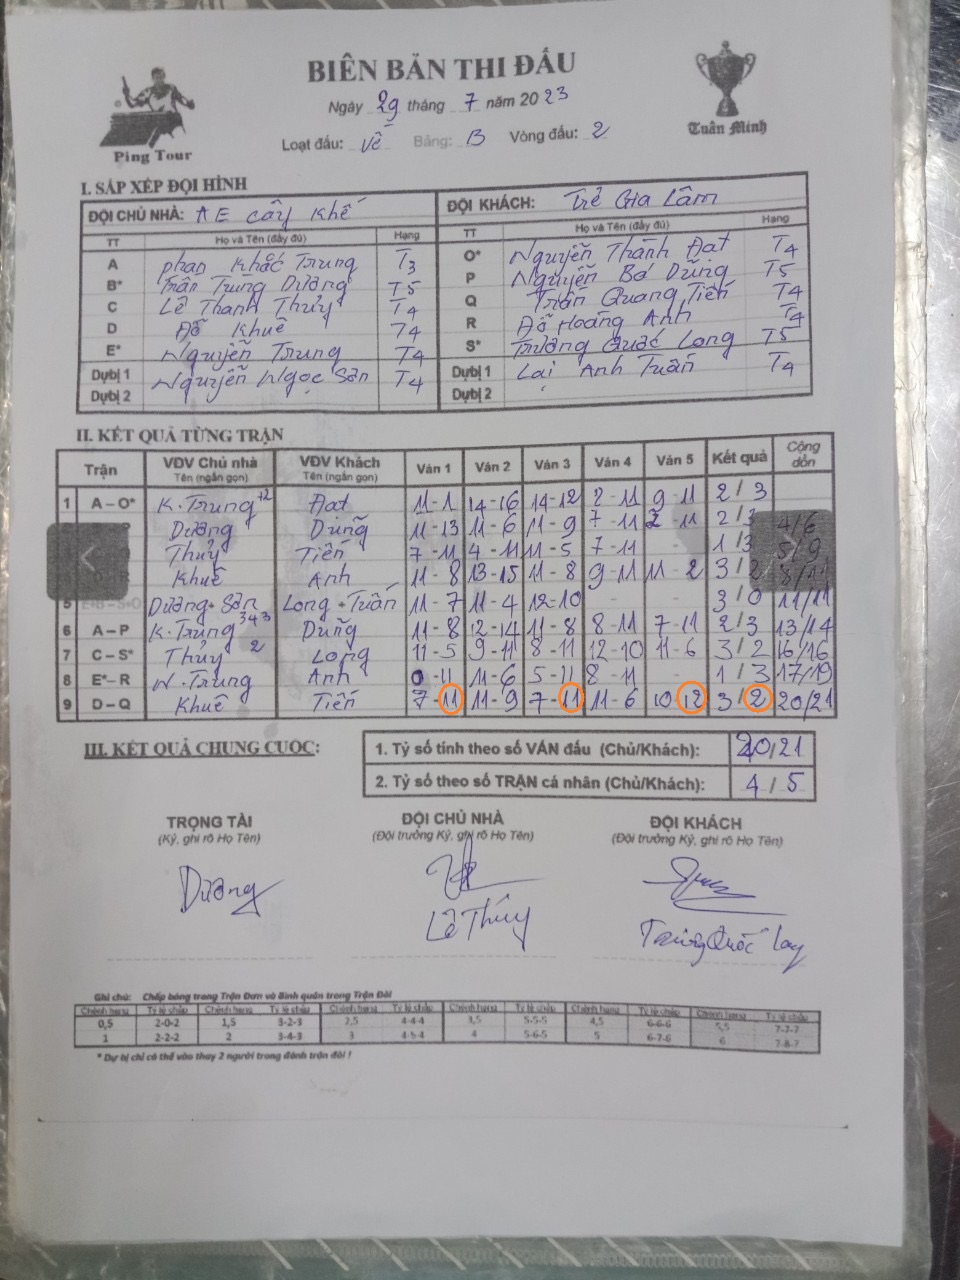 BIÊN BẢN THI ĐẤU
Ngày 29 tháng 7 năm 2023
Loạt đấu: Về Bảng: B Vòng đấu: 2
Ping Tour
Tuấn Minh
I. SẮP XẾP ĐỘI HÌNH
ĐỘI CHỦ NHÀ: AE Cây Khế ĐỘI KHÁCH: Trẻ Gia Lâm
TT Họ và Tên (đầy đủ) Hạng TT Họ và Tên (đầy đủ) Hạng
A Phan Khắc Trung T3 O* Nguyễn Thành Đạt T4
B* Trần Trung Dương T5 P Nguyễn Bá Dũng T5
C Lê Thanh Thủy T4 Q Trần Quang Tiến T4
D Đỗ Khuê T4 R Đỗ Hoàng Anh T4
E* Nguyễn Trung T4 S* Trương Quốc Long T5
Dự bị 1 Nguyễn Ngọc Sơn T4 Dự bị 1 Lại Anh Tuấn T4
Dự bị 2 Dự bị 2
II. KẾT QUẢ TỪNG TRẬN
Trận VĐV Chủ nhà VĐV Khách Ván 1 Ván 2 Ván 3 Ván 4 Ván 5 Kết quả Cộng dồn
Tên (ngắn gọn) Tên (ngắn gọn)
1 A – O* K.Trung +2 Đạt 11-1 14-16 14-12 2-11 9-11 2/3
Dương Dũng 11-13 11-6 11-9 7-11 2-11 2/3 4/6
Thủy Tiến 7-11 4-11 11-5 7-11 - 1/3 5/9
Khuê Anh 11-8 13-15 11-8 9-11 11-2 3/2 8/11
5 E+B – S+O Dương+Sơn Long+Tuấn 11-7 11-4 12-10 - - 3/0 11/11
6 A – P K.Trung 343 Dũng 11-8 12-14 11-8 8-11 7-11 2/3 13/14
7 C – S* Thủy 2 Long 11-5 9-11 8-11 12-10 11-6 3/2 16/16
8 E* – R N.Trung Anh 0-11 11-6 5-11 8-11 - 1/3 17/19
9 D – Q Khuê Tiến 7-11 11-9 7-11 11-6 10-12 3/2 20/21
III. KẾT QUẢ CHUNG CUỘC:
1. Tỷ số tính theo số VÁN đấu (Chủ/Khách): 20/21
2. Tỷ số theo số TRẬN cá nhân (Chủ/Khách): 4/5
TRỌNG TÀI ĐỘI CHỦ NHÀ ĐỘI KHÁCH
(Ký, ghi rõ Họ Tên) (Đội trưởng Ký, ghi rõ Họ Tên) (Đội trưởng Ký, ghi rõ Họ Tên)
Dương Lê Thủy Trương Quốc Long
Ghi chú: Chấp bóng trong Trận Đơn và Bình quân trong Trận Đôi
Chênh hạng Tỷ lệ chấp Chênh hạng Tỷ lệ chấp Chênh hạng Tỷ lệ chấp Chênh hạng Tỷ lệ chấp Chênh hạng Tỷ lệ chấp Chênh hạng Tỷ lệ chấp
0,5 2-0-2 1,5 3-2-3 2,5 4-4-4 3,5 5-5-5 4,5 6-6-6 5,5 7-7-7
1 2-2-2 2 3-4-3 3 4-5-4 4 5-6-5 5 6-7-6 6 7-8-7
* Dự bị chỉ có thể vào thay 2 người trong đánh trận đôi !